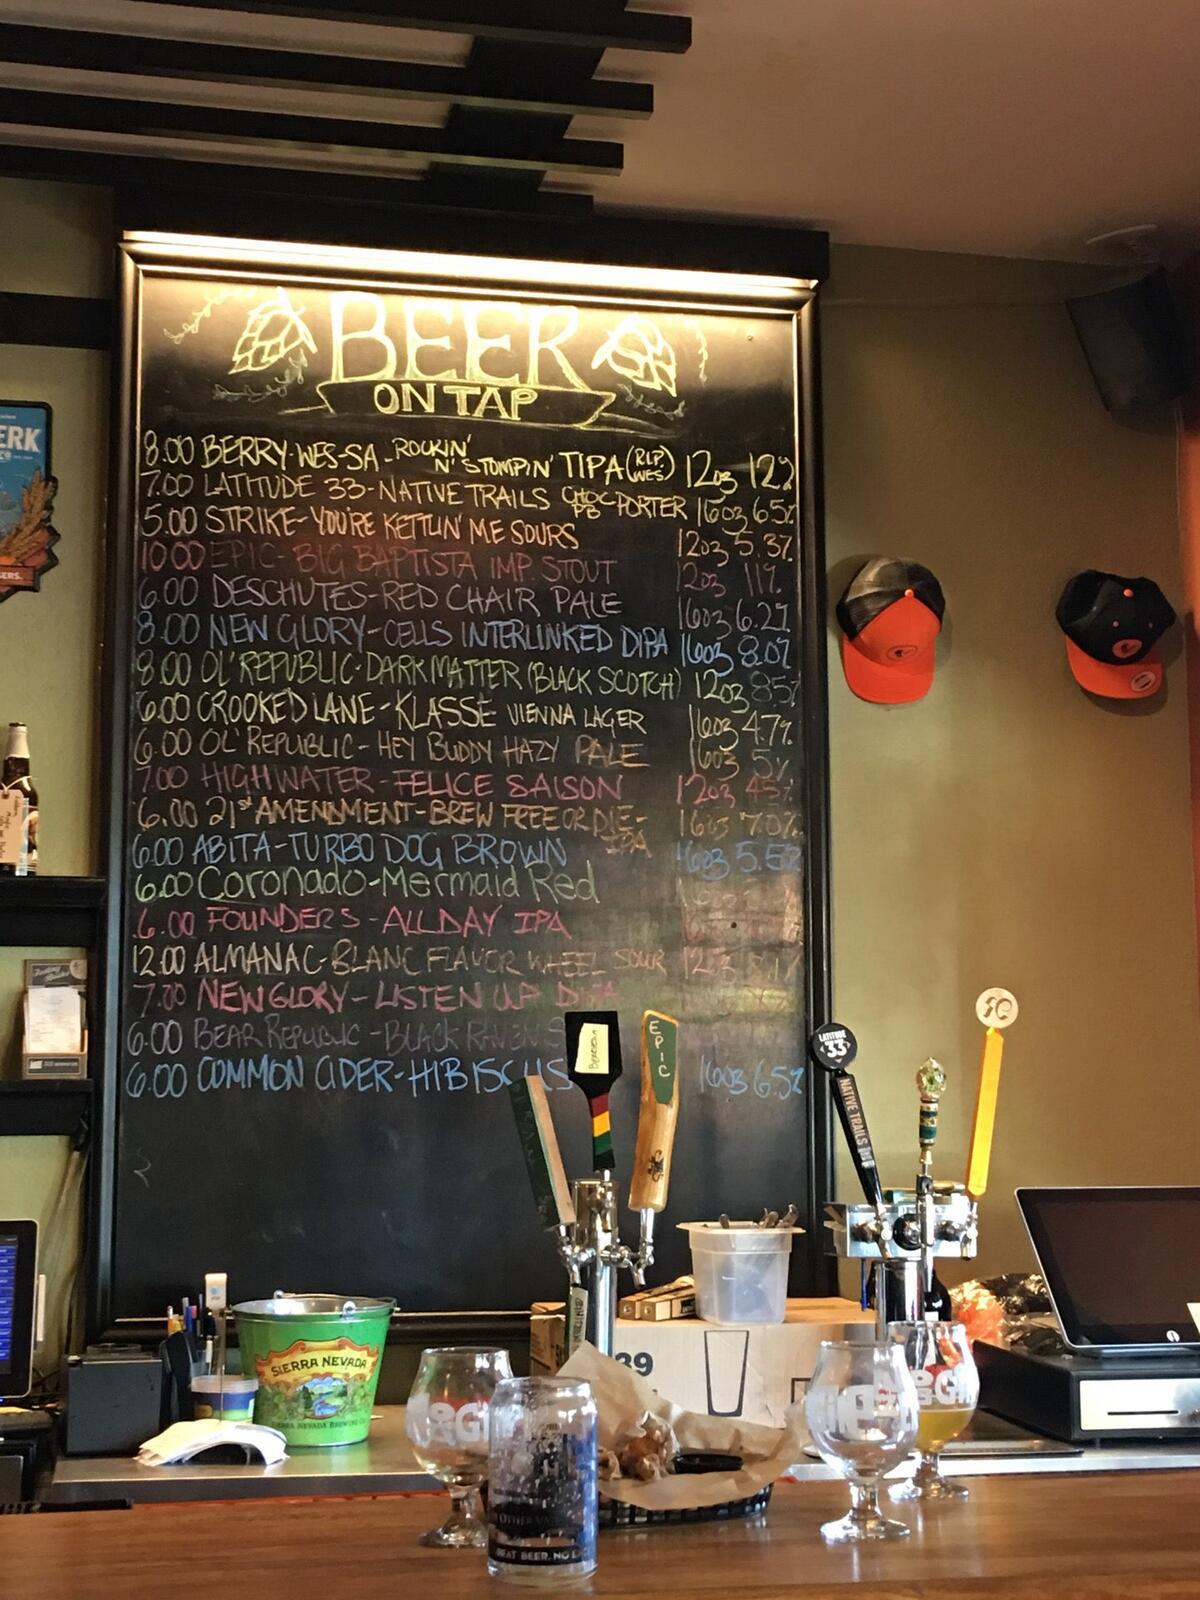 BEER
ON TAP
8.00 BERRY-WES-SA-ROCKIN' N' STOMPIN' TIPA (R.I.P. WES) 12oz 12%
7.00 LATITUDE 33-NATIVE TRAILS CHOC PB PORTER 16oz 6.5%
5.00 STRIKE-YOU'RE KETTLIN' ME SOURS 12oz 5.3%
10.00 EPIC-BIG BAPTISTA IMP. STOUT 12oz 11%
6.00 DESCHUTES-RED CHAIR PALE 16oz 6.2%
8.00 NEW GLORY-CELLS INTERLINKED DIPA 16oz 8.0%
8.00 OL' REPUBLIC-DARK MATTER (BLACK SCOTCH) 12oz 8.5%
6.00 CROOKED LANE-KLASSE VIENNA LAGER 16oz 4.7%
6.00 OL' REPUBLIC-HEY BUDDY HAZY PALE 16oz 5%
7.00 HIGH WATER-FELICE SAISON 12oz 4.5%
6.00 21st AMENDMENT-BREW FREE OR DIE-IPA 16oz 7.0%
6.00 ABITA-TURBO DOG BROWN 16oz 5.6%
6.00 Coronado-Mermaid Red 16oz
6.00 FOUNDERS-ALL DAY IPA
12.00 ALMANAC-BLANC FLAVOR WHEEL SOUR 12oz
7.00 NEW GLORY-LISTEN UP DIPA
6.00 BEAR REPUBLIC-BLACK RAVEN S
6.00 COMMON CIDER-HIBISCUS 16oz 6.5%
ERK
EPIC
LATITUDE 33
NATIVE TRAILS
SIERRA NEVADA
SIERRA NEVADA BREWING CO.
39